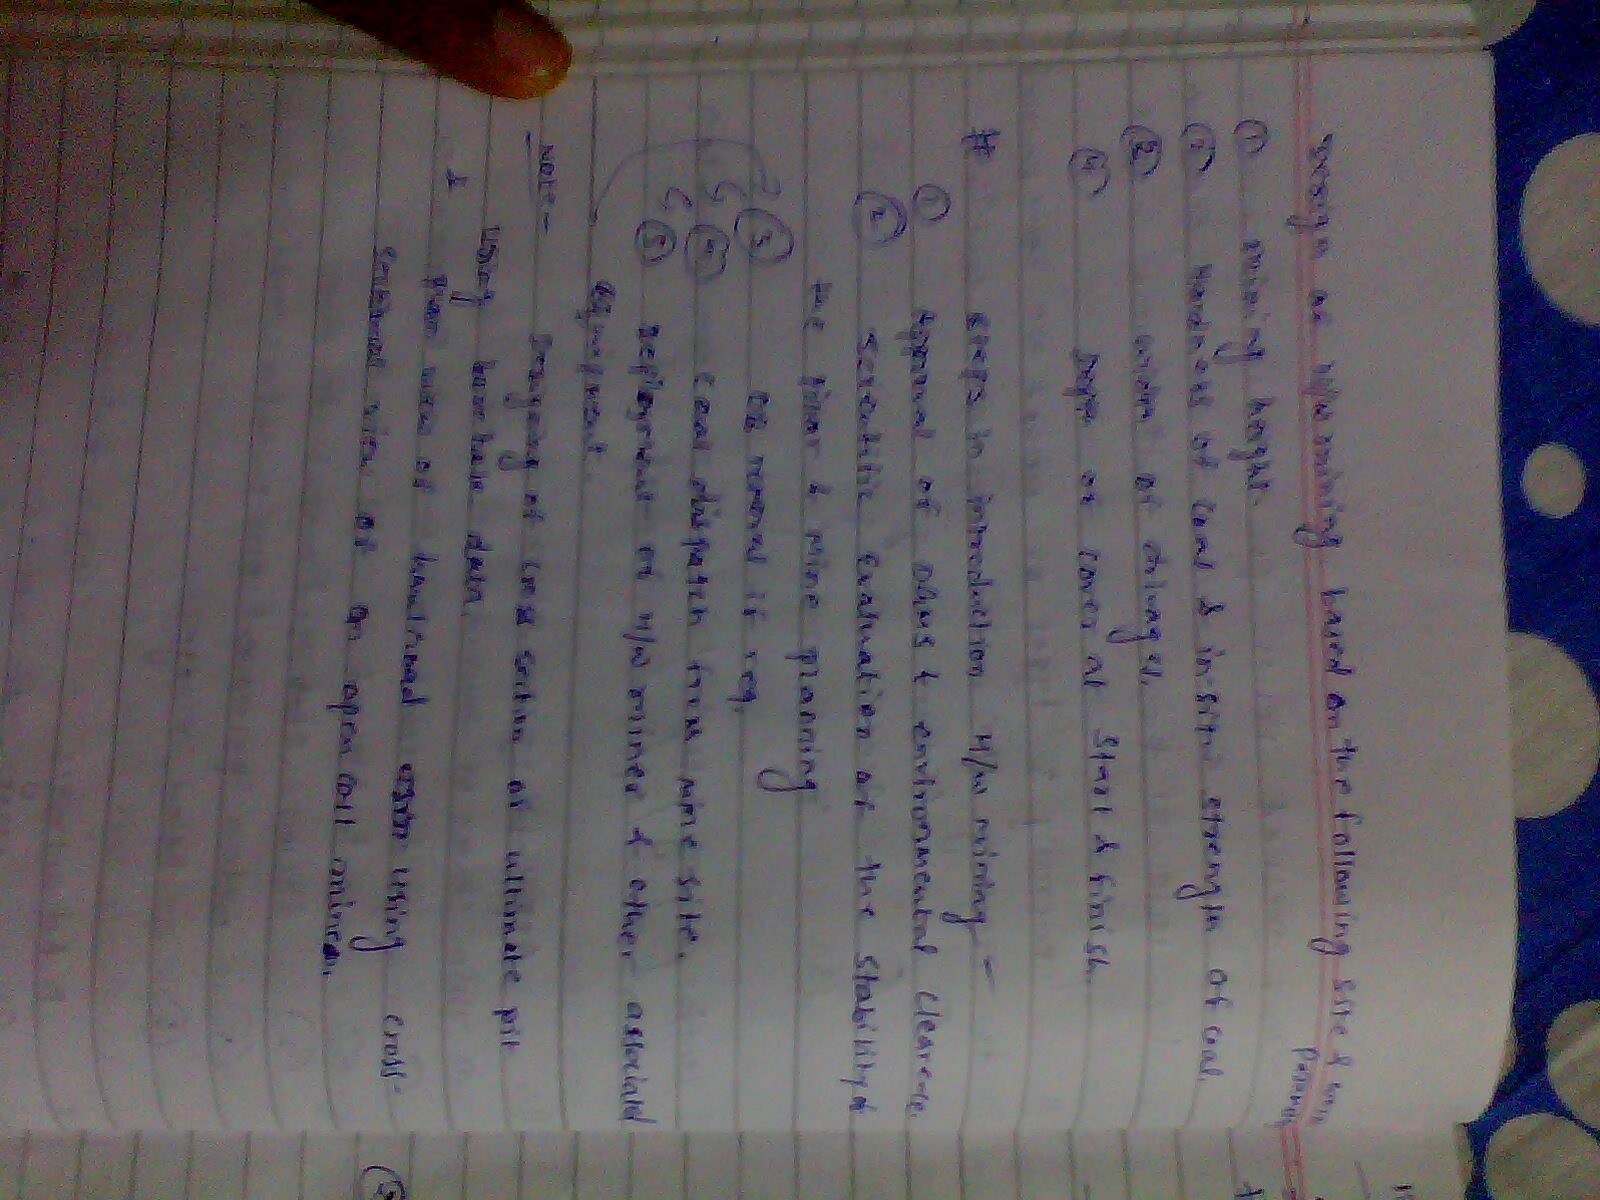 Design of H/w mining based on the following site &
Param
① mining height.
② Hardness of coal & in-situ strength of coal.
③ width of drivages.
④ Depth of cover at start & finish.
# Steps in introduction H/w mining -
① Approval of DGMS & environmental clearence.
② Scientific Evaluation of the stability of
the pillar & mine planning
③ OB removal if req.
④ Coal dispatch from mine site.
⑤ Deployment of H/w miner & other associated
equipment.
Note - Drawing of cross section of ultimate pit
using bore hole data.
& plan view of using cross-
sectional view of an open cast mine.